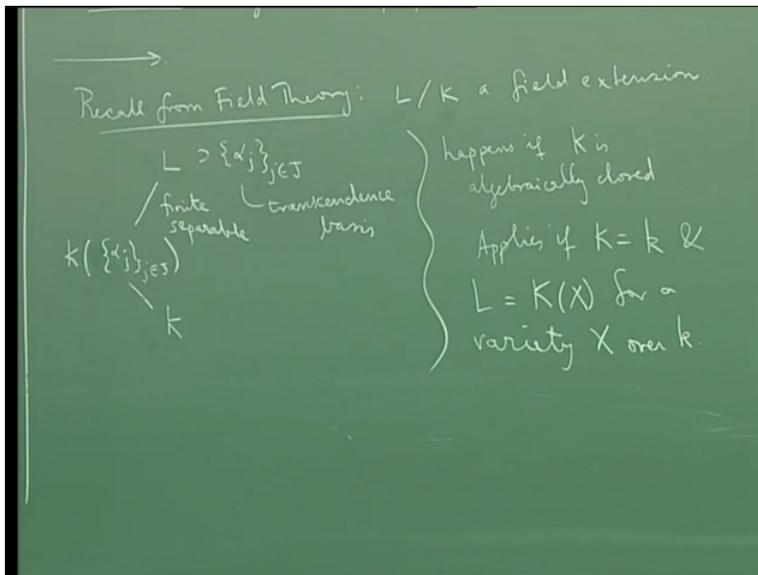 Recall from Field Theory: L/K a field extension.
L ⊃ {αj}j∈J
finite separable
transcendence basis
K({αj}j∈J)
K
happens if K is
algebraically closed
Applies if K = k &
L = K(X) for a
variety X over k.